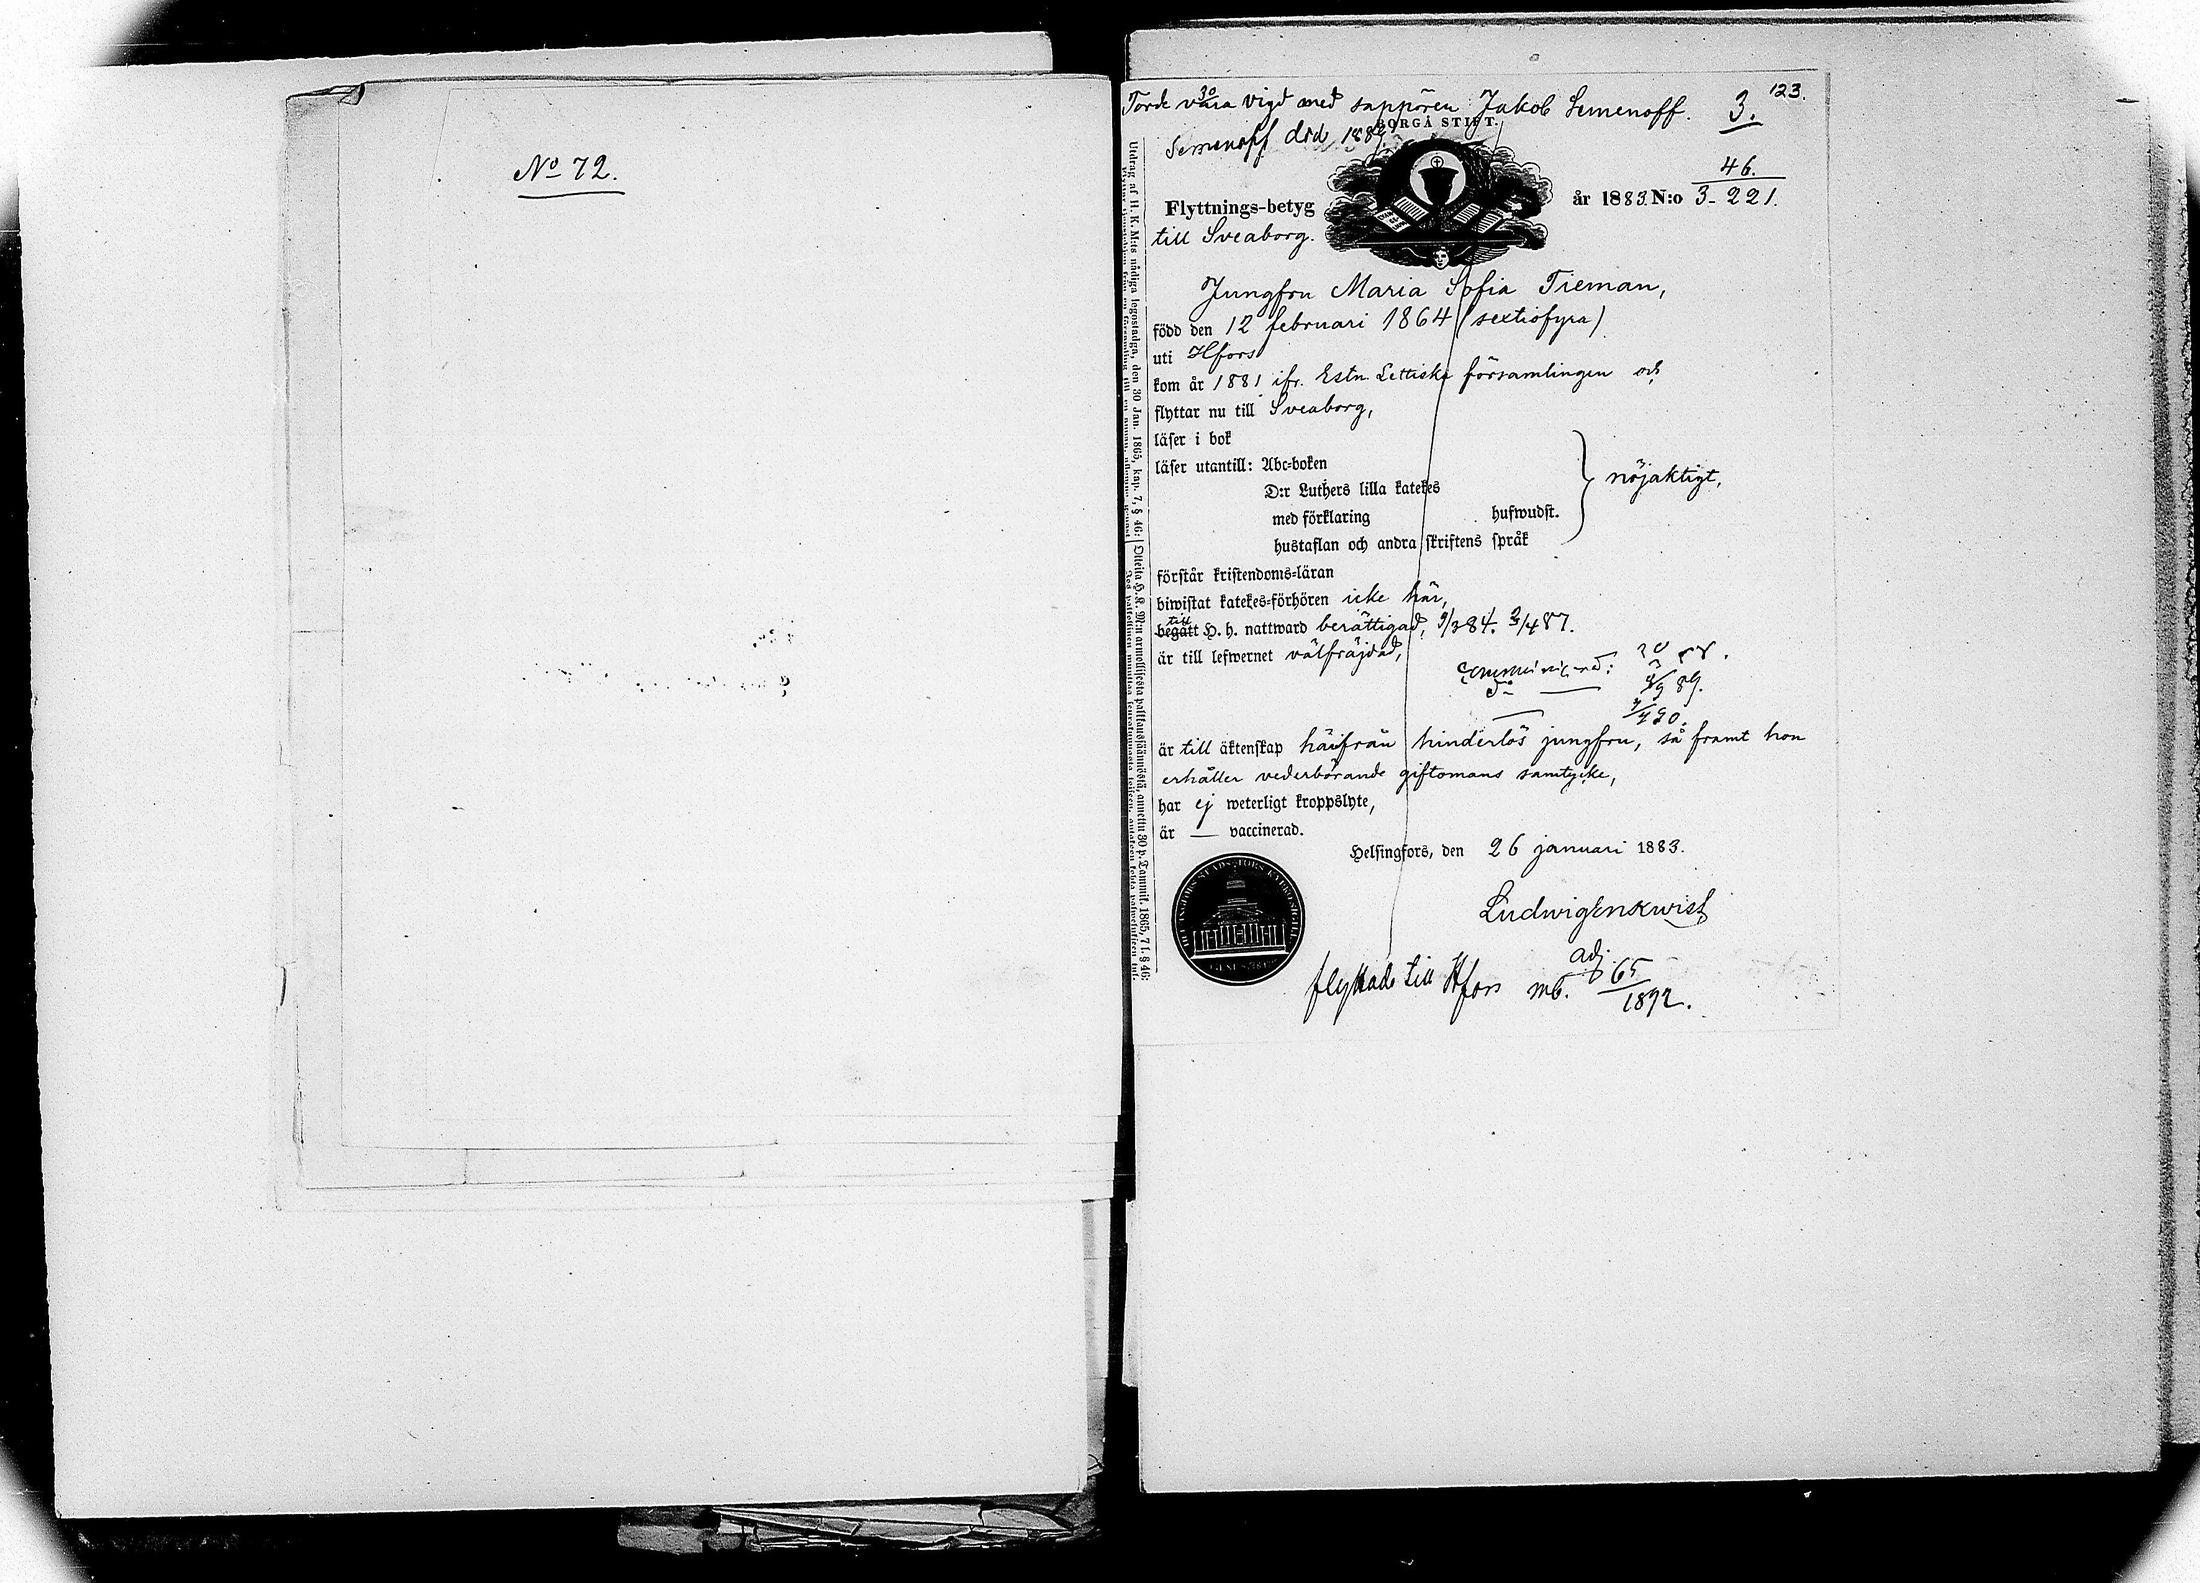 No 72.
123.
30
Torde vara vigd med sappören Jakob Semenoff. 3.
Semenoff död
BORGÅ STIFT.
46.
Flyttnings-betyg år 1883 N:o 3-221.
till Sveaborg.
Jungfru Maria Sofia Tieman,
född den 12 februari 1864 (sextiofyra)
uti Hfors
kom år 1881 ifr. Estn. Lettiska församlingen och
flyttar nu till Sveaborg,
läser i bok
läser utantill: Abc-boken
D:r Luthers lilla katekes
nöjaktigt,
med förklaring hufwudst.
hustaflan och andra skriftens språk
förstår kristendoms-läran
biwistat katekes-förhören icke här,
till
begått H. h. nattward berättigad, 9/3 84. 3/4 87.
är till lefwernet välfräjdad,
89.
är till äktenskap härifrån hinderlös jungfru, så framt hon
erhåller vederbörande giftomans samtycke,
har ej weterligt kroppslyte,
är — vaccinerad.
Helsingfors, den 26 januari 1883.
Ludwig Enkwist
adj.
flyttade till Hfors mb. 65
1892.
Utdrag af H. K. M:ts nådiga legostadga, den 30 Jan. 1865, kap. 7, § 46: